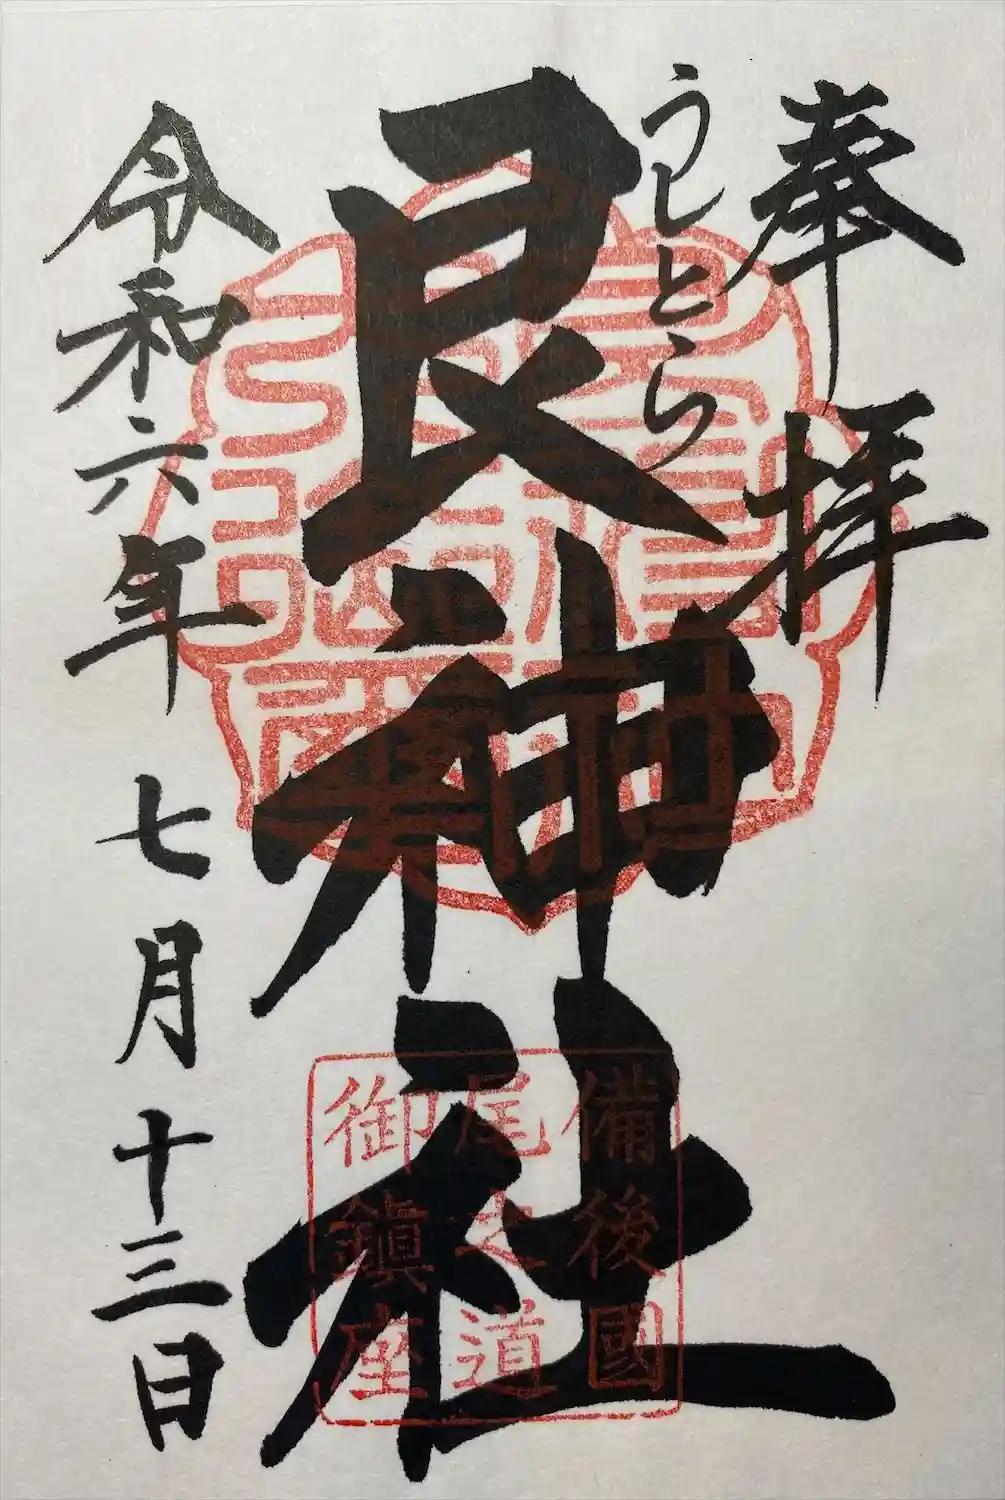 奉拝
うしとら
艮神社
令和六年七月十三日
備後國
尾之道
御鎮座